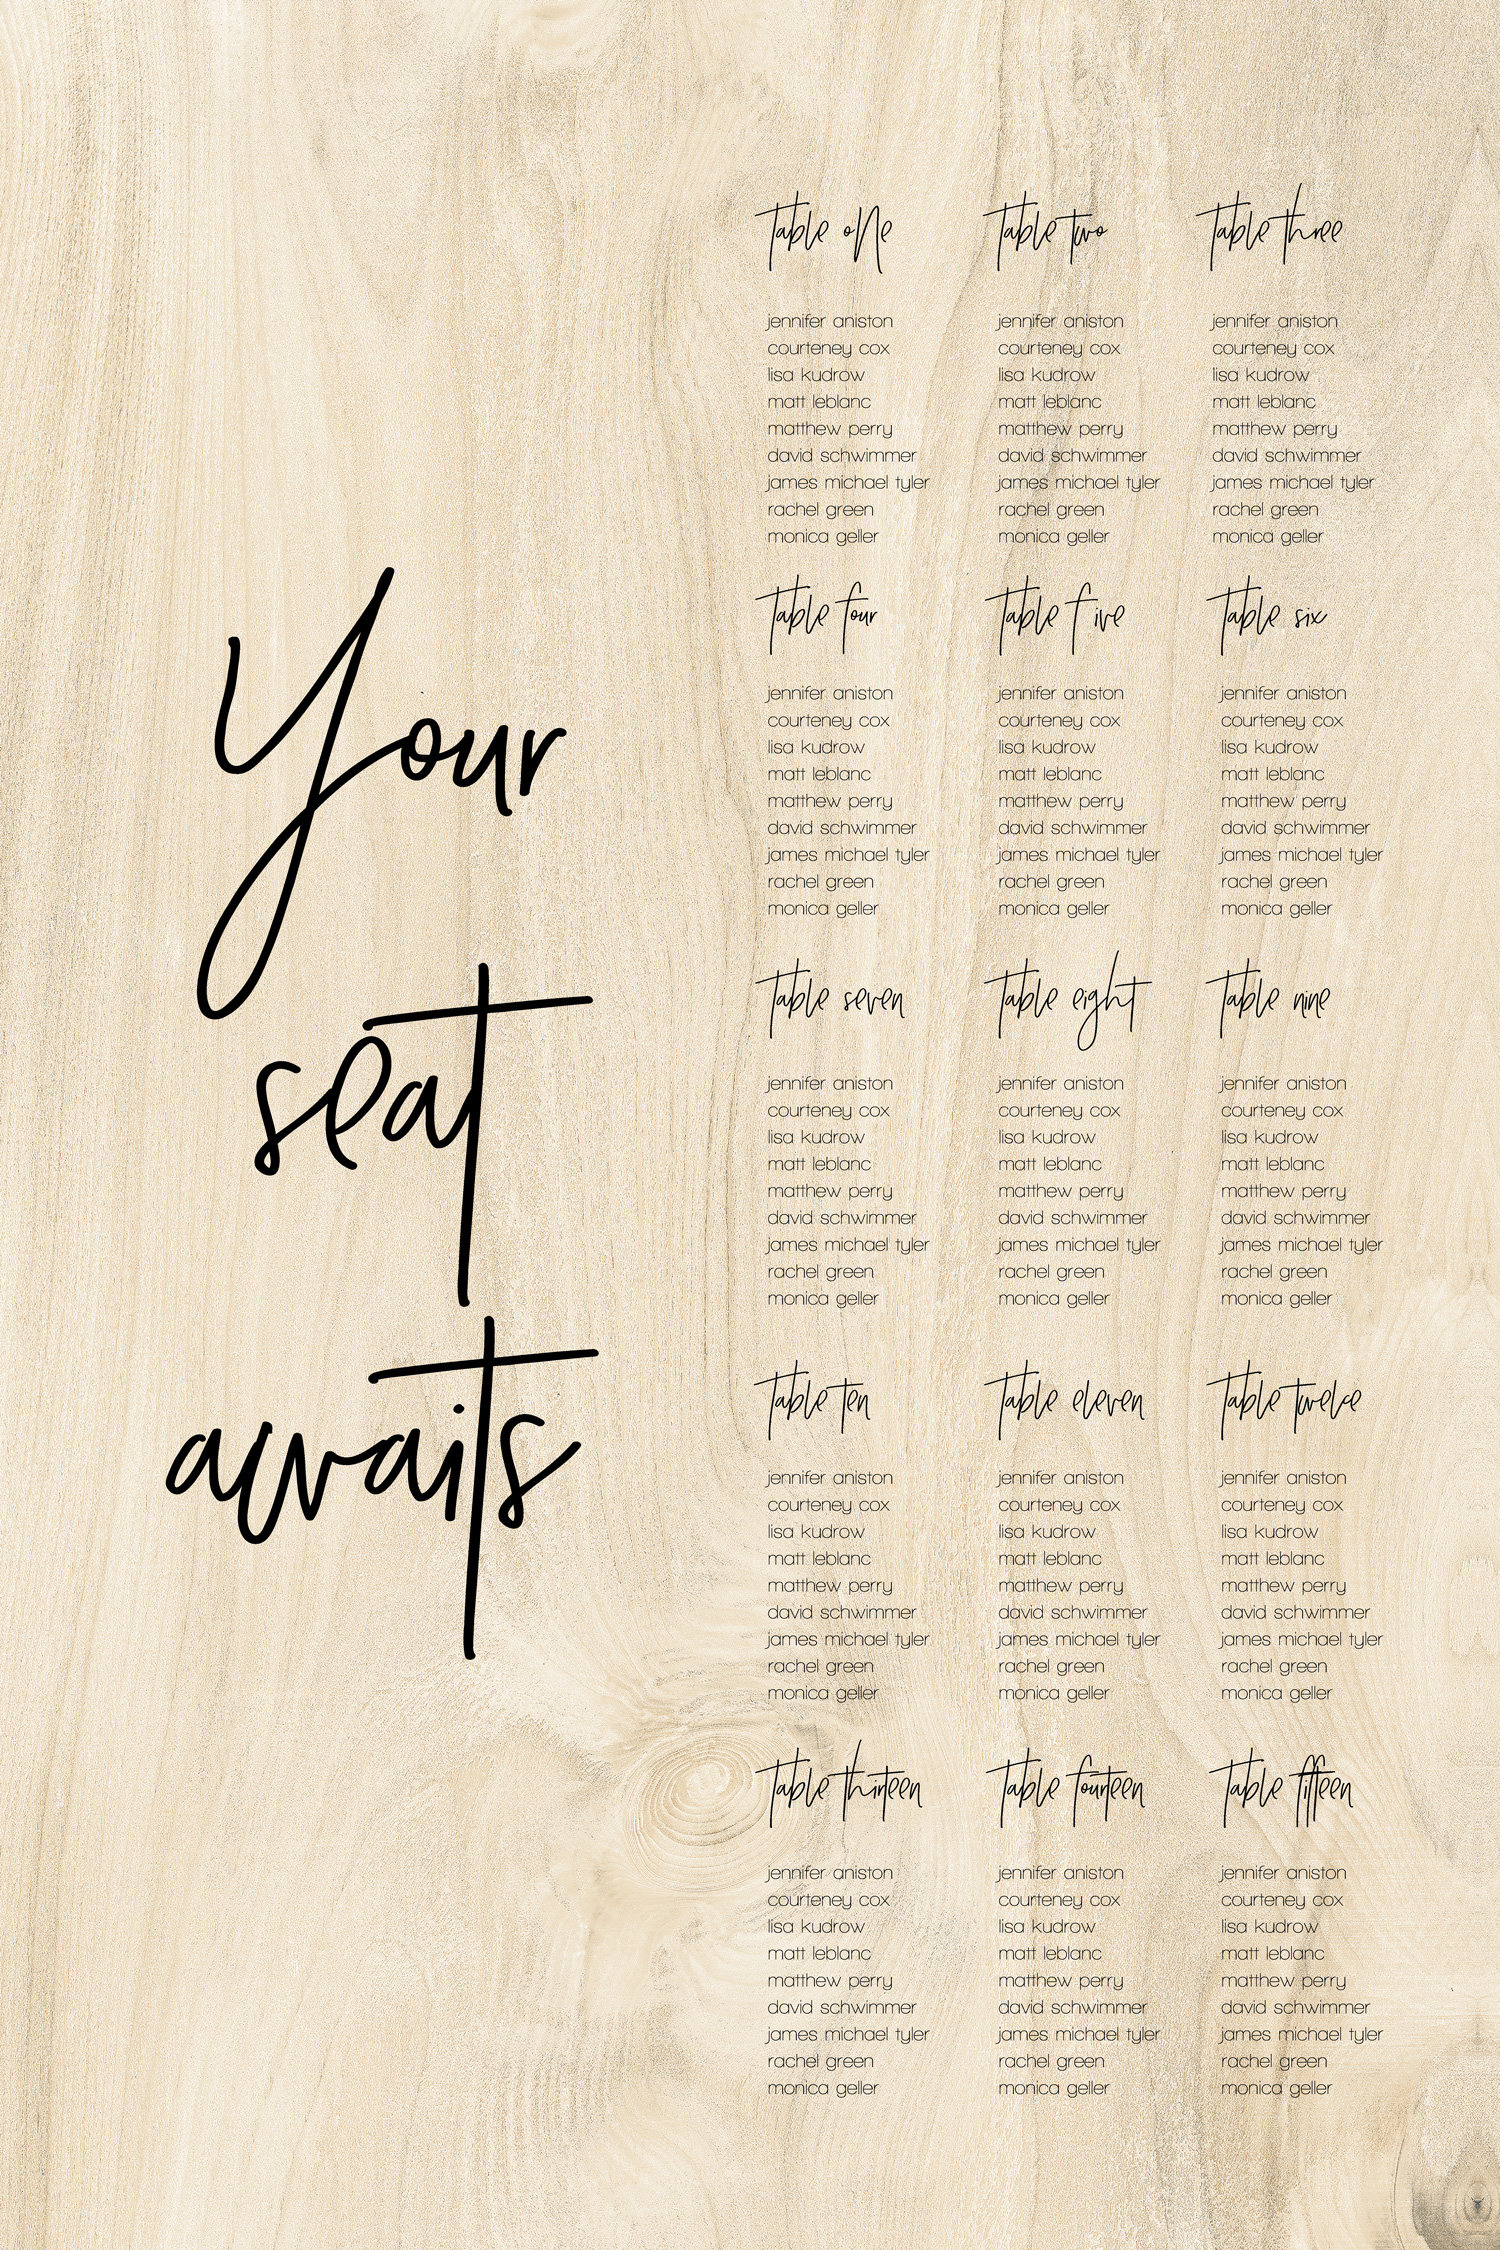 Your
seat
awaits
table one
jennifer aniston
courteney cox
lisa kudrow
matt leblanc
matthew perry
david schwimmer
james michael tyler
rachel green
monica geller
table two
jennifer aniston
courteney cox
lisa kudrow
matt leblanc
matthew perry
david schwimmer
james michael tyler
rachel green
monica geller
table three
jennifer aniston
courteney cox
lisa kudrow
matt leblanc
matthew perry
david schwimmer
james michael tyler
rachel green
monica geller
table four
jennifer aniston
courteney cox
lisa kudrow
matt leblanc
matthew perry
david schwimmer
james michael tyler
rachel green
monica geller
table five
jennifer aniston
courteney cox
lisa kudrow
matt leblanc
matthew perry
david schwimmer
james michael tyler
rachel green
monica geller
table six
jennifer aniston
courteney cox
lisa kudrow
matt leblanc
matthew perry
david schwimmer
james michael tyler
rachel green
monica geller
table seven
jennifer aniston
courteney cox
lisa kudrow
matt leblanc
matthew perry
david schwimmer
james michael tyler
rachel green
monica geller
table eight
jennifer aniston
courteney cox
lisa kudrow
matt leblanc
matthew perry
david schwimmer
james michael tyler
rachel green
monica geller
table nine
jennifer aniston
courteney cox
lisa kudrow
matt leblanc
matthew perry
david schwimmer
james michael tyler
rachel green
monica geller
table ten
jennifer aniston
courteney cox
lisa kudrow
matt leblanc
matthew perry
david schwimmer
james michael tyler
rachel green
monica geller
table eleven
jennifer aniston
courteney cox
lisa kudrow
matt leblanc
matthew perry
david schwimmer
james michael tyler
rachel green
monica geller
table twelve
jennifer aniston
courteney cox
lisa kudrow
matt leblanc
matthew perry
david schwimmer
james michael tyler
rachel green
monica geller
table thirteen
jennifer aniston
courteney cox
lisa kudrow
matt leblanc
matthew perry
david schwimmer
james michael tyler
rachel green
monica geller
table fourteen
jennifer aniston
courteney cox
lisa kudrow
matt leblanc
matthew perry
david schwimmer
james michael tyler
rachel green
monica geller
table fifteen
jennifer aniston
courteney cox
lisa kudrow
matt leblanc
matthew perry
david schwimmer
james michael tyler
rachel green
monica geller